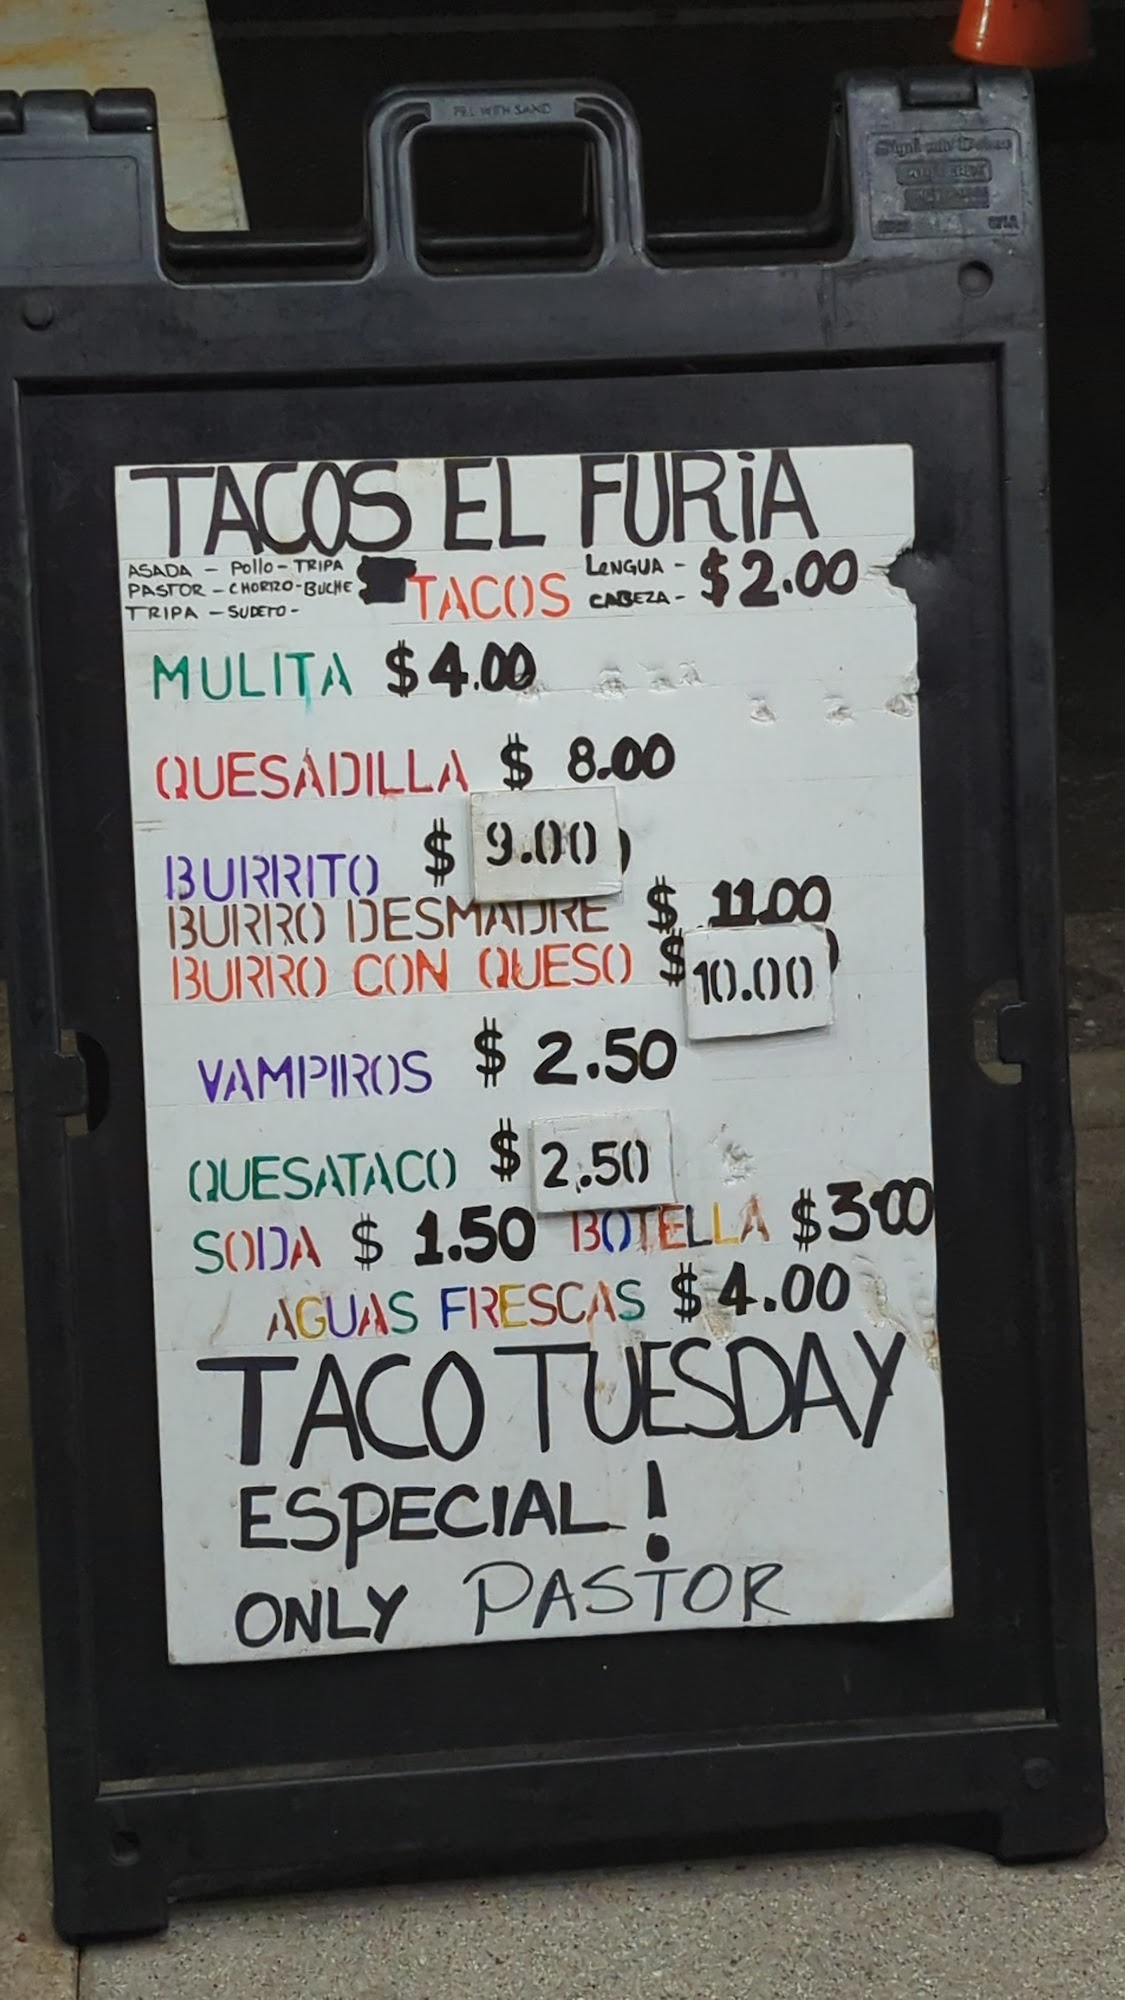 FILL WITH SAND
TACOS EL FURiA
ASADA - Pollo - TRIPA
PASTOR - CHORIZO - BUCHE
TRIPA - SUDETO -
TACOS
LENGUA -
CABEZA -
$2.00
MULITA $4.00
QUESADILLA $ 8.00
BURRITO $ 9.00
BURRO DESMADRE $ 11.00
BURRO CON QUESO $ 10.00
VAMPIROS $ 2.50
QUESATACO $ 2.50
SODA $ 1.50 BOTELLA $3.00
AGUAS FRESCAS $4.00
TACO TUESDAY
ESPECIAL!
ONLY PASTOR